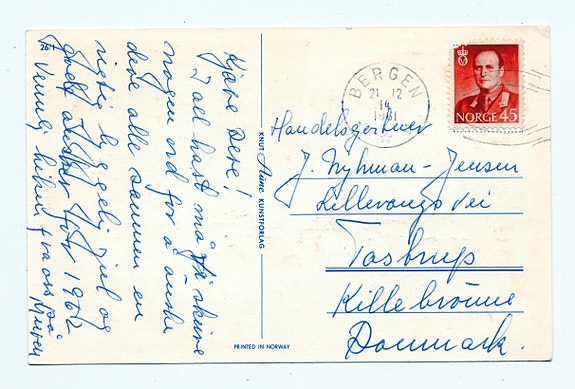 Kjære Dere!
I all hast må jeg skrive
nogen ord for å ønske
dere alle sammen en
riktig hyggelig jul og
godt 1962
Vennlig hilsen fra oss på
26-1
KNUT Aune KUNSTFORLAG
PRINTED IN NORWAY
BERGEN
21 12
14
1961
NORGE 45
Handelsgartner
J. Nyhman-Jensen
Lillevangs Vei
Tastrup
Killebrönne
Danmark.